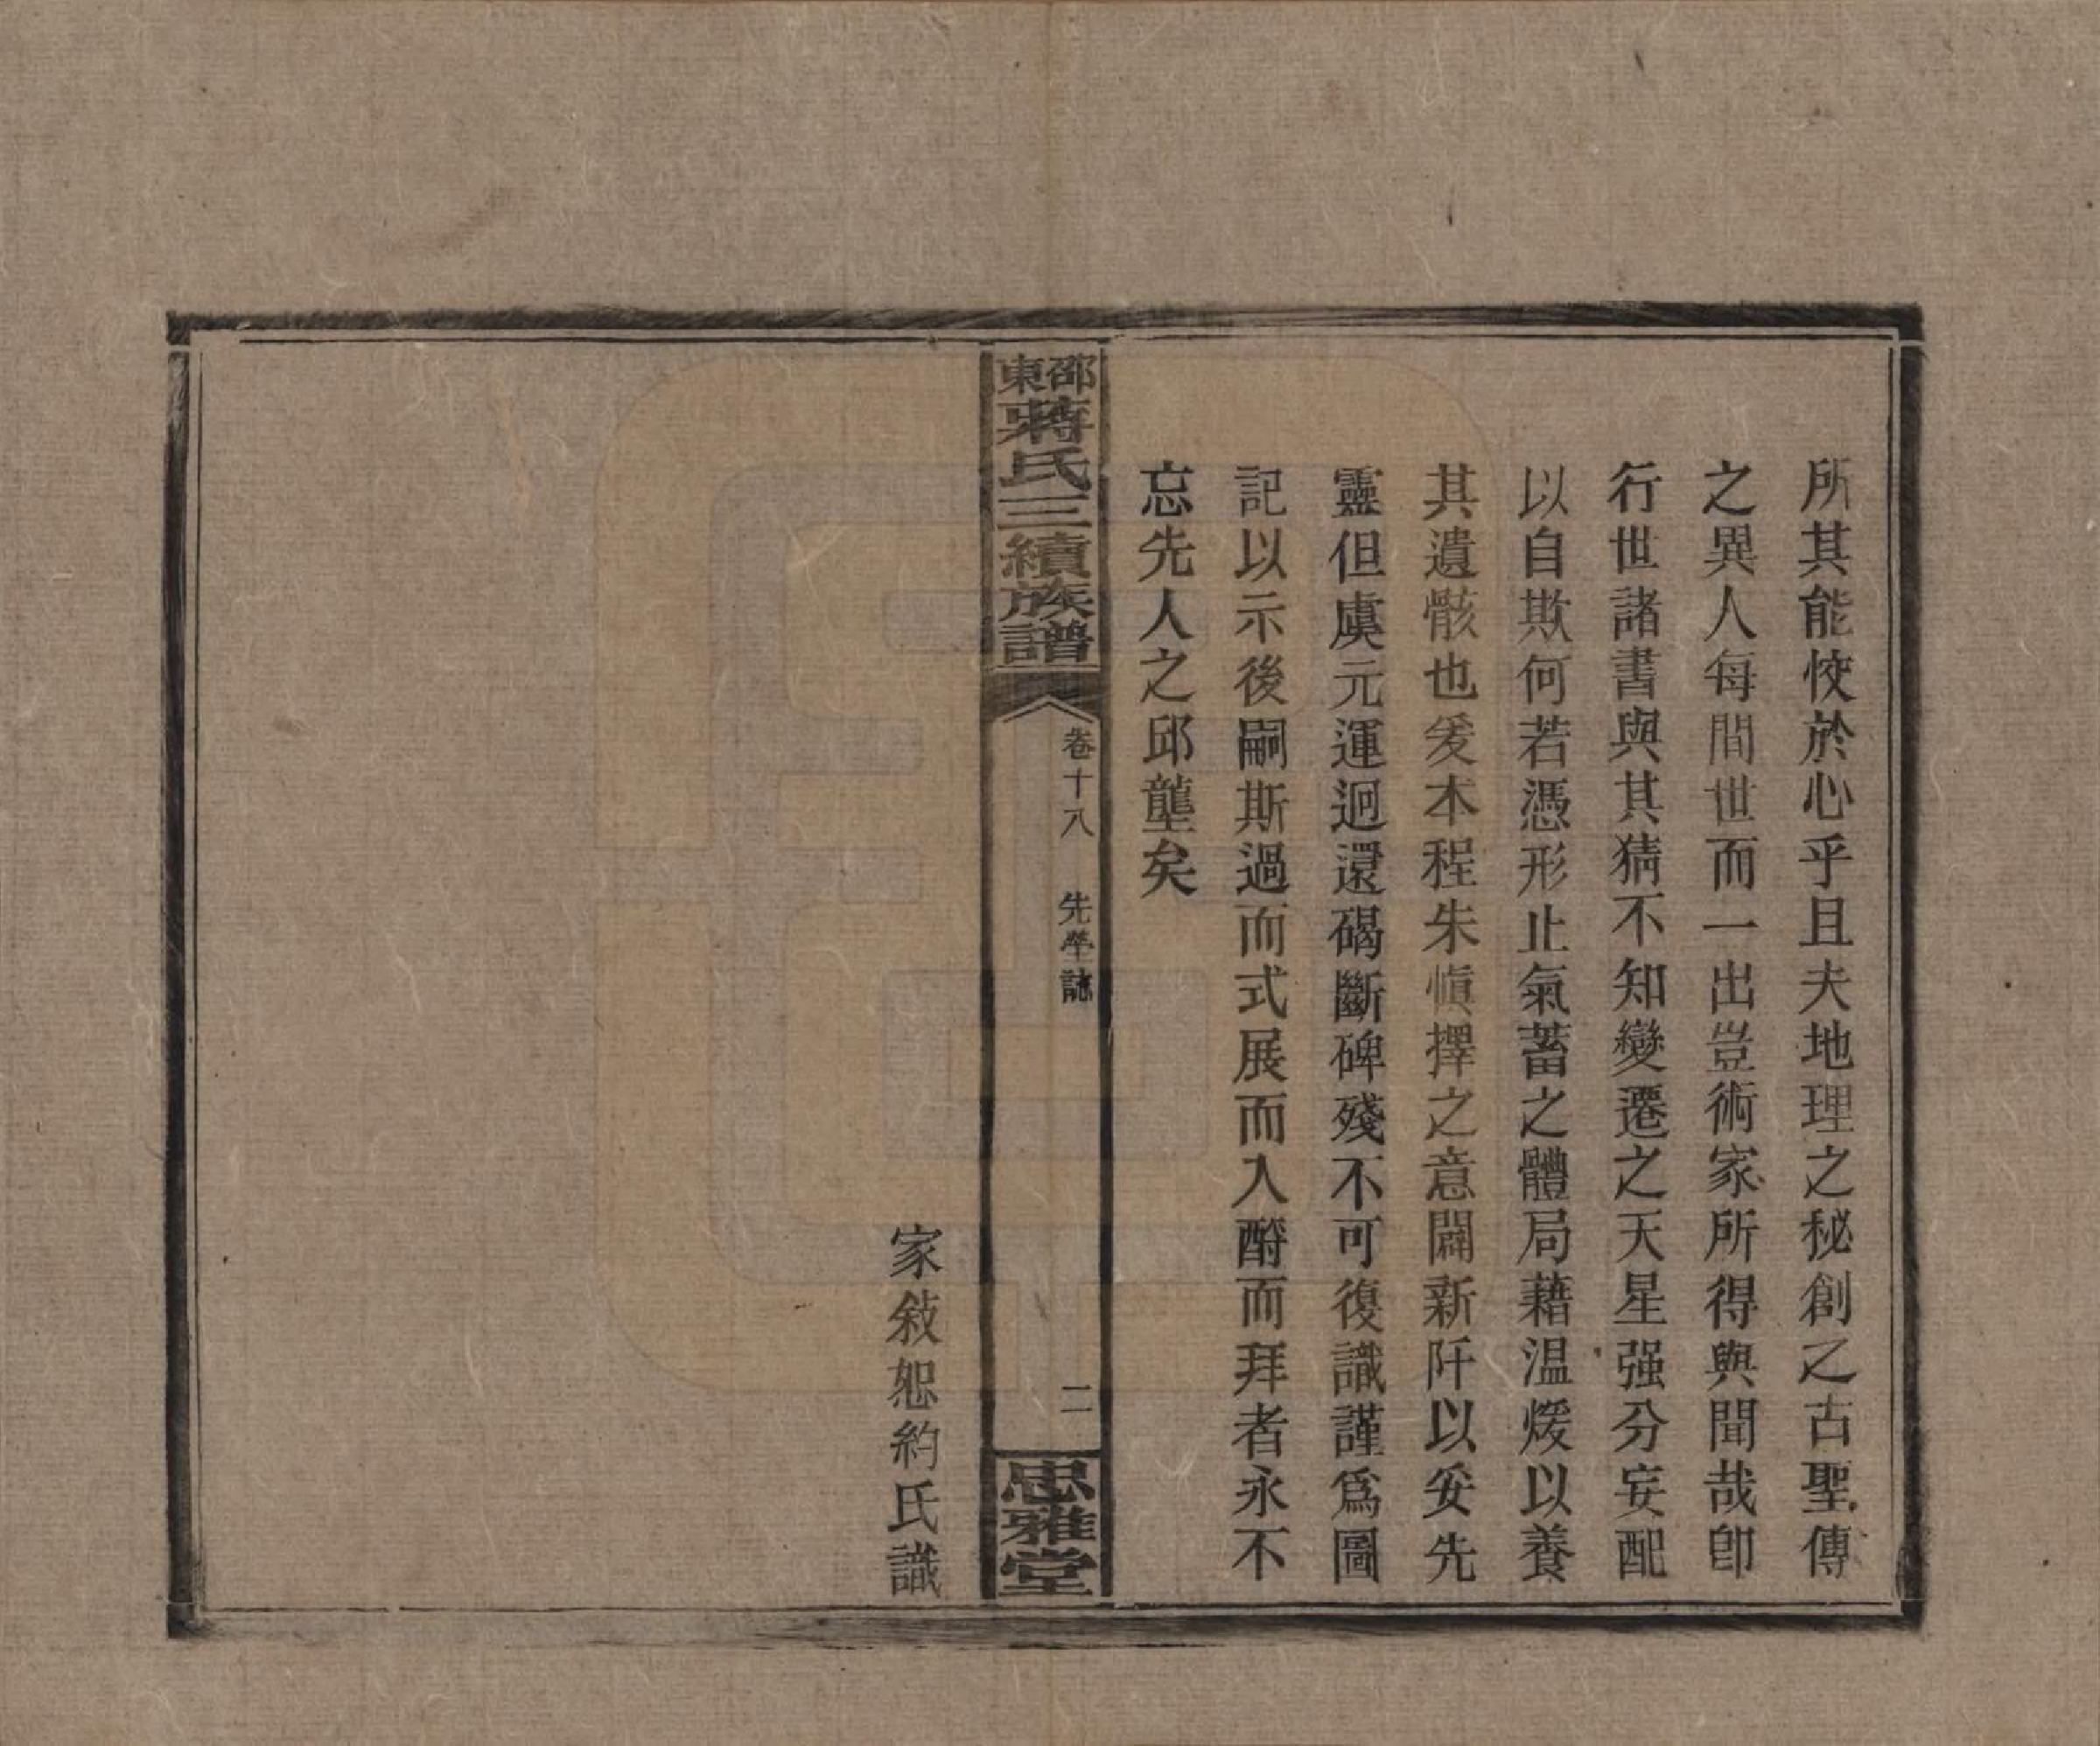 所其能恔於心乎且夫地理之秘創之古聖傳
之異人每間世而一出豈術家所得與聞哉卽
行世諸書與其猜不知變遷之天星强分妄配
以自欺何若憑形止氣蓄之體局藉温煖以養
其遺骸也爰本程朱愼擇之意闢新阡以妥先
靈但虞元運迥還碣斷碑殘不可復識謹爲圖
記以示後嗣斯過而式展而入酹而拜者永不
忘先人之邱壟矣
邵東蔣氏三續族譜
卷十八 先塋誌
二
忠雅堂
家敍恕約氏識